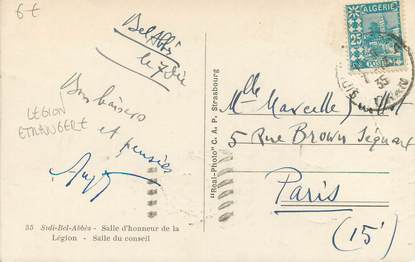 6€
Bel Abbès
le 7 Déc
Bons baisers
et pensées
LEGION
ETRANGERE
35 Sidi-Bel-Abbès - Salle d'honneur de la
Légion - Salle du conseil
"Real-Photo" C. A. P. Strasbourg
ALGERIE
25
POSTES
35
Melle Marcelle
5 Rue Brown Séquart
Paris
(15e)